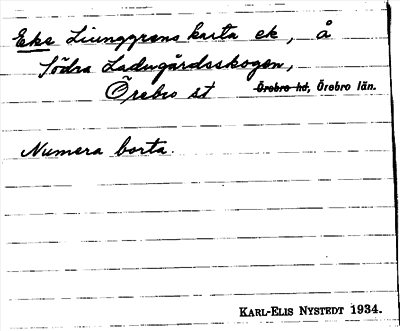 Eke Ljunggrens karta ek, å
Södra Ladugårdsskogen,
Örebro st Örebro hd, Örebro län.
Numera borta.
KARL-ELIS NYSTEDT 1934.